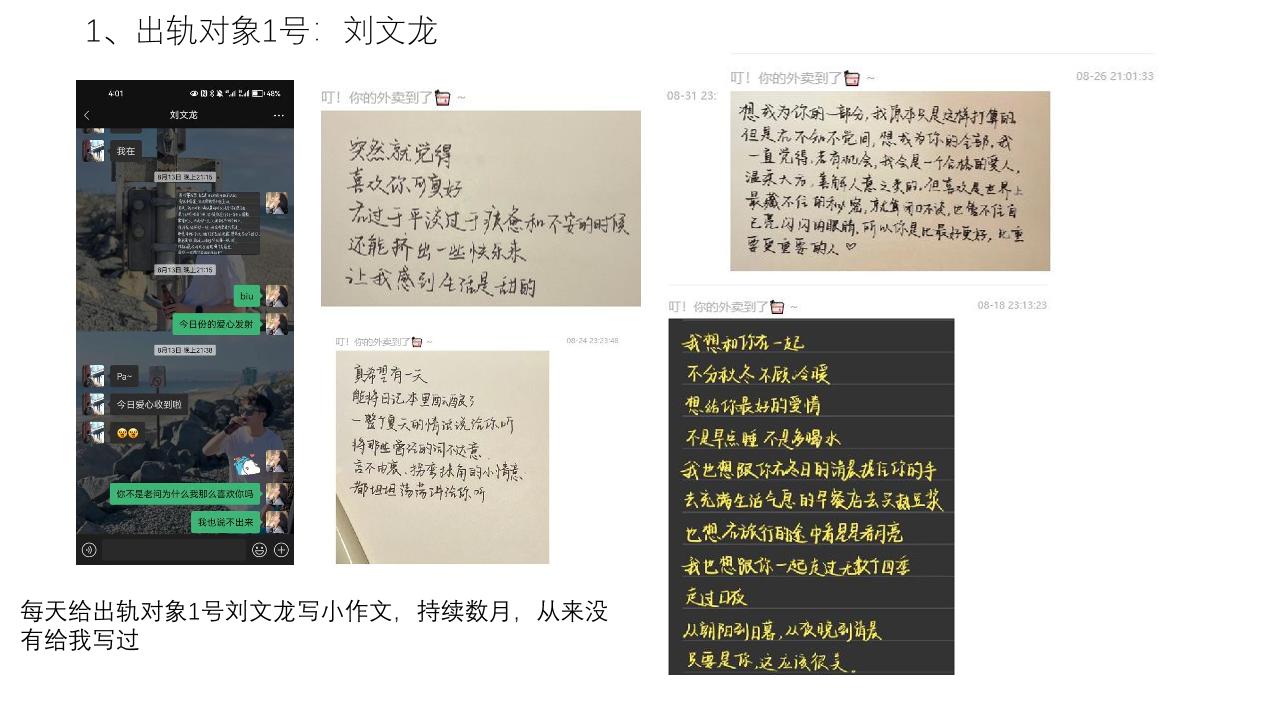 1、出轨对象1号：刘文龙
4:01
48%
刘文龙
我在
8月13日 晚上21:15
8月13日 晚上21:15
biu
今日份的爱心发射
8月13日 晚上21:38
Pa~
今日爱心收到啦
你不是老问为什么我那么喜欢你吗
我也说不出来
叮！你的外卖到了 ~
突然就觉得
喜欢你可真好
在过于平淡过于疲惫和不安的时候
还能挤出一些快乐来
让我感到生活是甜的
叮！你的外卖到了 ~
08-24 23:23:48
真希望有一天
能将日记本里酝酿了
一整个夏天的情话说给你听
将那些曾经的词不达意
言不由衷、拐弯抹角的小情意
都坦坦荡荡讲给你听
08-31 23:
叮！你的外卖到了 ~
08-26 21:01:33
想我为你的一部分，我原本只是这样打算的
但是在不知不觉间，想我为你的全部，我
一直觉得，若有机会，我会是一个合格的爱人，
温柔大方，善解人意之类的，但喜欢是世界上
最藏不住的秘密，就算闭口不谈，也管不住自
己亮闪闪的眼睛，所以你是比最好更好，比重
要更重要的人♡
叮！你的外卖到了 ~
08-18 23:13:23
我想和你在一起
不分秋冬 不顾冷暖
想给你最好的爱情
不是早点睡 不是多喝水
我也想跟你在冬日的清晨握住你的手
去充满生活气息的早餐店去买豆浆
也想在旅行的途中看星星看月亮
我也想跟你一起走过无数个四季
走过日夜
从朝阳到日暮，从夜晚到清晨
只要是你，这应该很美。
每天给出轨对象1号刘文龙写小作文，持续数月，从来没
有给我写过